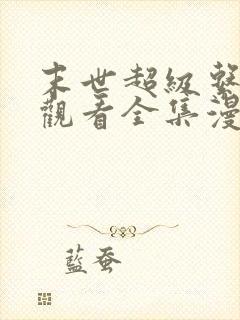 末世超級繫
觀看全集漫
藍蚕